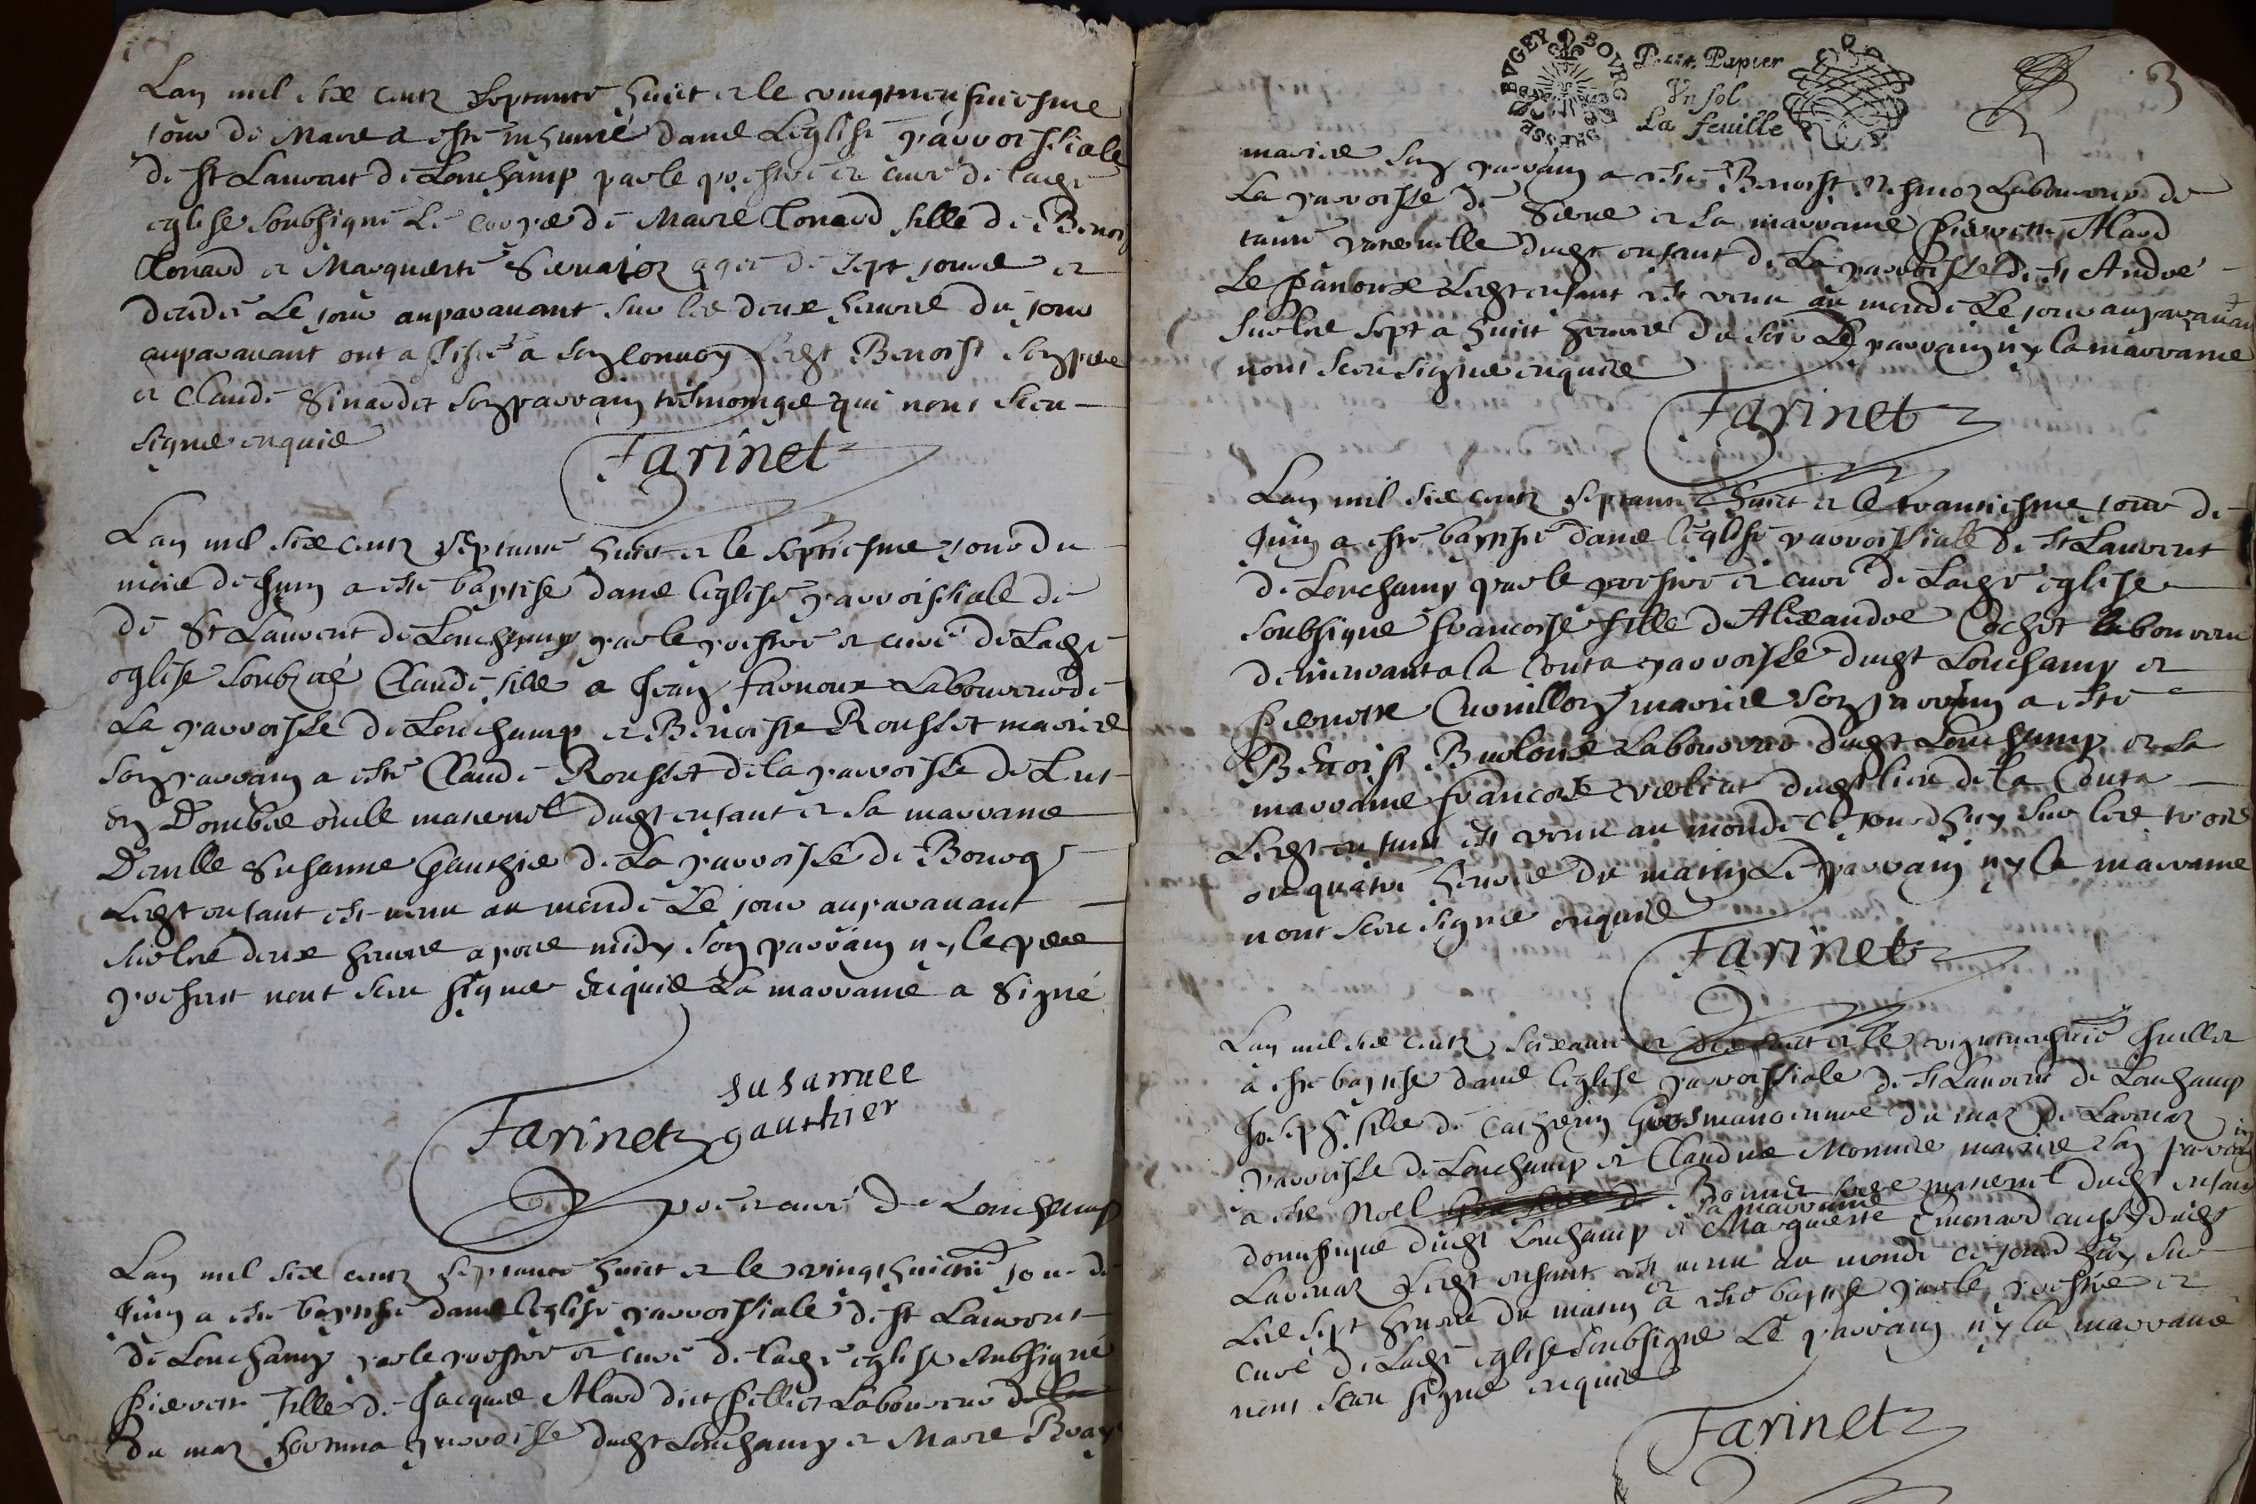 Lan mil six centz septante huict et le vingtneufviesme
jour de Mars a esté inhumé dans L'eglise parroissiale
de St Laurent de Lonchamp par le prestre et curé de ladte
eglise soubsigné Le corps de Marie Conard fille de Benoist
Conard et Marguerite agée de sept jours et
decedée Le jour auparavant sur les deux heures du jour
auparavant ont assisté a son convoy Ledt Benoist son pere
et Claude son parrain tesmoings qui n'ont sceu
signer enquis
Farinet
Lan mil six centz septante huict et le septiesme jour du
mois de Juin a esté baptisé dans l'eglise parroissiale de
de St Laurent de Lonchamp par le prestre et curé de Ladte
eglise soubzné Claude fils a Jean Farnoux Laboureur de
La parroisse de Lonchamp et Benoiste Rousset mariés
son parrain a esté Claude Rousset de la parroisse de
en Dombes oncle maternel dudt enfant et sa marraine
Demlle Susanne Gauthier de La parroisse de Bourg
Ledt enfant est venu au monde Le jour auparavant
sur les deux heures apres midy son parrain ny le pere
present n'ont sceu signer enquis La marraine a signé
Farinet susannee
gauthier
ptre et curé de Lonchamp
Lan mil six centz septante huict et le vingthuictie jour de
Juin a esté baptisée dans l'eglise parroissiale de St Laurent
de Lonchamp par le prestre et curé de ladte eglise soubsigné
Pierrette fille de Jacques Alard dict Laboureur de la
du mas parroisse dudt Lonchamp et Marie
3
BRESSE BVGEY BOVRG
Petit Papier
Vn sol
La feuille
mariés son parrain a esté Benoist Laboureur de
La parroisse de et sa marraine Pierrette Alard
tante paternelle dudt enfant de La parroisse de St André
Le panoux Ledt enfant est venu au monde Le jour auparavant
sur les sept a huict heures du soir Le parrain ny la marraine
n'ont sceu signer enquis
Farinet
Lan mil six centz septante huict et le trantiesme jour de
Juin a esté baptisé dans l'eglise parroissiale de St Laurent
de Lonchamp par le prestre et curé de Ladte eglise
soubsigné Francoise fille d'Alexandre Cochet laboureur
demeurant a la Couta parroisse dudt Lonchamp et
Pierrette Cuvillon mariés son parrain a esté
Benoist Laboureur dudt Lonchamp et sa
marraine Francoise dudt lieu de la Couta
Ledt enfant est venu au monde ce jourdhuy sur les trois
ou quatre heures du matin Le parrain ny la marraine
n'ont sceu signer enquis
Farinet
Lan mil six centz soixante et dix huict et le Juillet
a esté baptisé dans l'eglise parroissiale de St Laurent de Lonchamp
Joseph fils de Catherin Grosmano du mas de Lavenas
parroisse de Lonchamp et Claudine Monnier mariés son parrain
a esté Noel Bonnet oncle maternel dudt enfant
sa marraine
domestique dudt Lonchamp et Marguerite aussy dudt
Lavenas Ledt enfant est venu au monde ce jourdhuy sur
Les sept heures du matin et a esté baptisé par le prestre et
curé de Ladte eglise soubsigné Le parrain ny la marraine
n'ont sceu signer enquis
Farinet